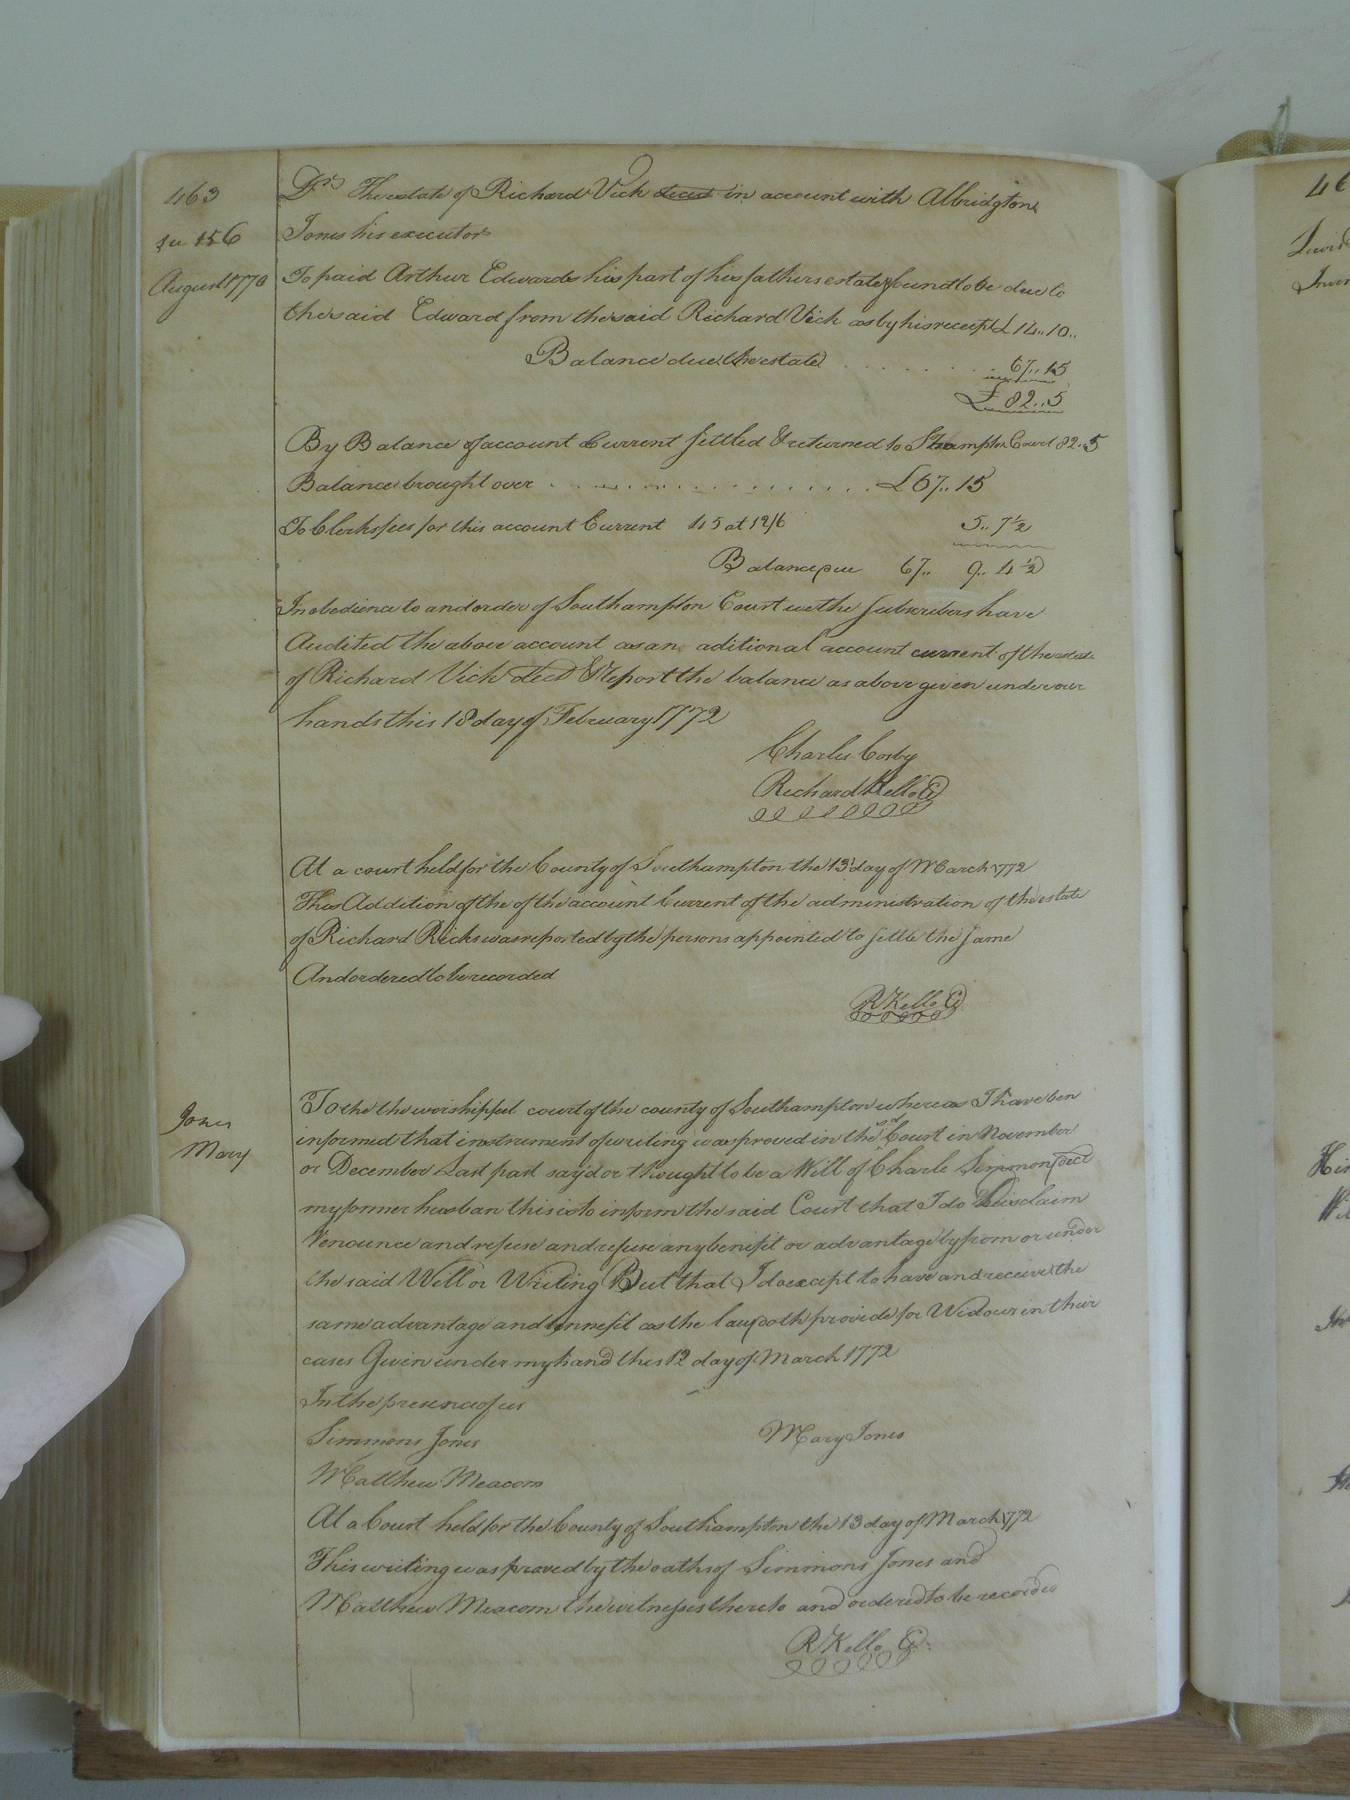 463
Dr The estate of Richard Vick decd in account with Albridgton
Jones his executor
August 1770
To paid Arthur Edwards his part of his fathers estate found to be due to
the said Edward from the said Richard Vick as by his receipt £ 14..10..
Balance due the estate . . . . . . . . 67..15
£ 82..5
By Balance of account Current settled & returned to Shampton Court 82..5
Balance brought over . . . . . . . . . . . . . . £67..15
To Clerks fees for this account Current 45 at 12/6 5..7½
Balance due 67.. 9..4½
In obedience to and order of Southampton Court we the subscribers have
Audited the above account as an aditional account current of the estate
of Richard Vick decd & Report the balance as above given under our
hands this 18 day of February 1772
Charles Cosby
Richard Kello
At a court held for the County of Southampton the 13 day of March 1772
This Addition of the of the account Current of the administration of the estate
of Richard Ricks was reported by the persons appointed to settle the same
And ordered to be recorded
R Kello C
Jones
Mary
To the the worshipful court of the county of Southampton whereas I have ben
informed that instrument of writing was proved in the Court in November
or December Last past sayd or thought to be a Will of Charle Simmons decd
my former husban this is to inform the said Court that I do Disclaim
Renounce and refuse and refuse any benefit or advantage by from or under
the said Will or Writing But that I do except to have and receive the
same advantage and bennefit as the law doth provide for Widows in their
cases Given under my hand this 12 day of March 1772
In the presence of us
Simmons Jones
Mary Jones
Matthew Meacom
At a Court held for the County of Southampton the 13 day of March 1772
This writing was proved by the oaths of Simmons Jones and
Matthew Meacom the witnesses thereto and ordered to be recorded
R Kello C